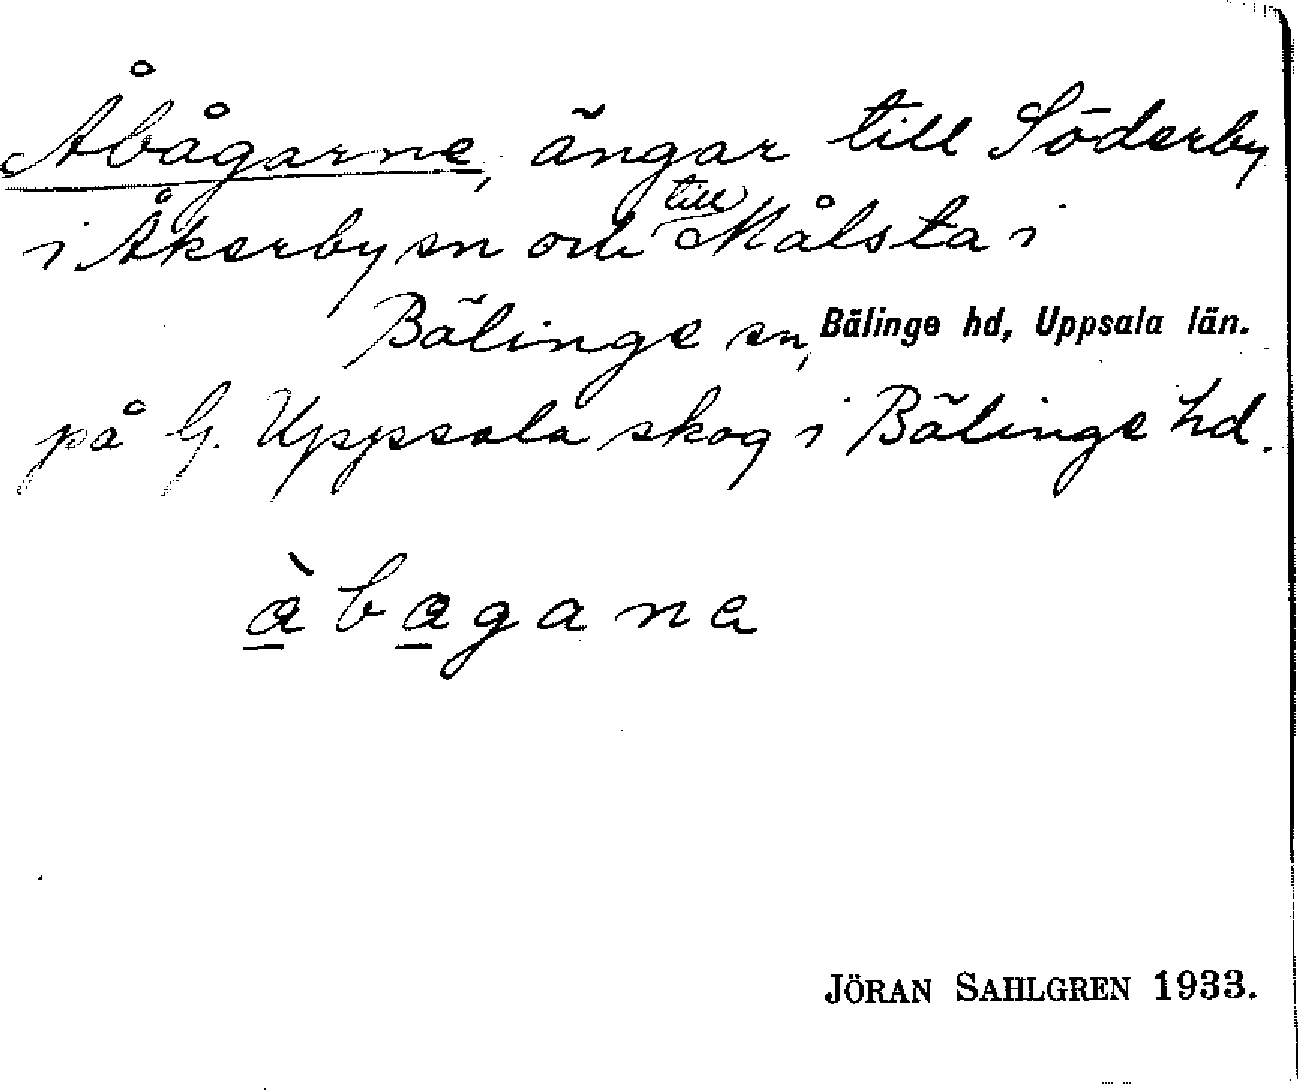 Åbågarne, ängar till Söderby
i Åkerby sn och till Målsta i
Bälinge sn, Bälinge hd, Uppsala län.
på G. Uppsala skog i Bälinge hd.
à̱ba̱gana
JÖRAN SAHLGREN 1933.